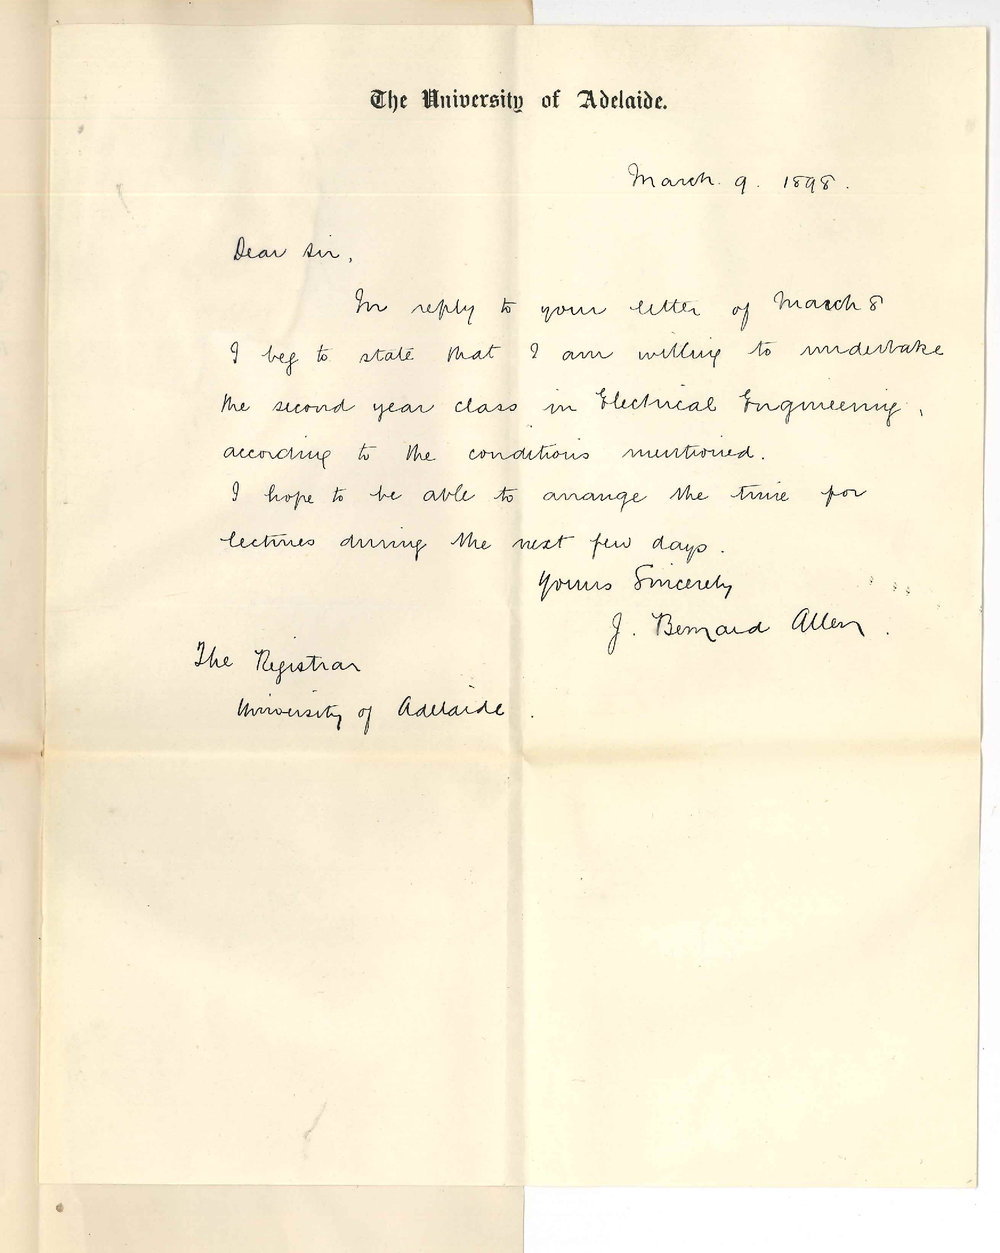 The University of Adelaide.
March. 9. 1898.
Dear Sir,
In reply to your letter of March 8
I beg to state that I am willing to undertake
the second year class in Electrical Engineering,
according to the conditions mentioned.
I hope to be able to arrange the time for
lectures during the next few days.
Yours Sincerely
J. Bernard Allen.
The Registrar
University of Adelaide.